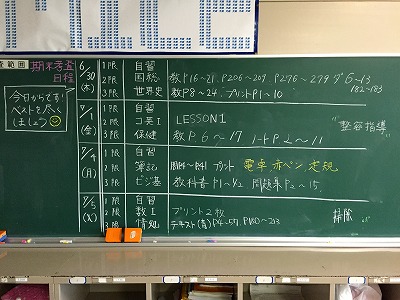 査範囲
期末考査
日程
今日からです!
ベストを尽く
しましょう
6/30
(木)
1限 自習
2限 国総 教P16~21, P206~209, P276~279
182~183
3限 世界史 教P8~24, プリントP1~10
7/1
(金)
1限 自習
2限 コ英I LESSON 1
3限 保健 教P.6~17 ノートP.2~11
"整容指導"
7/4
(月)
1限 自習
2限 簿記 プリント 電卓, 赤ペン, 定規
3限 ビジ基 教科書P1~42 問題集P2~15
7/5
(火)
1限 自習
2限 数I プリント2枚
3限 情処 テキスト(青)P4~59, P180~213
掃除